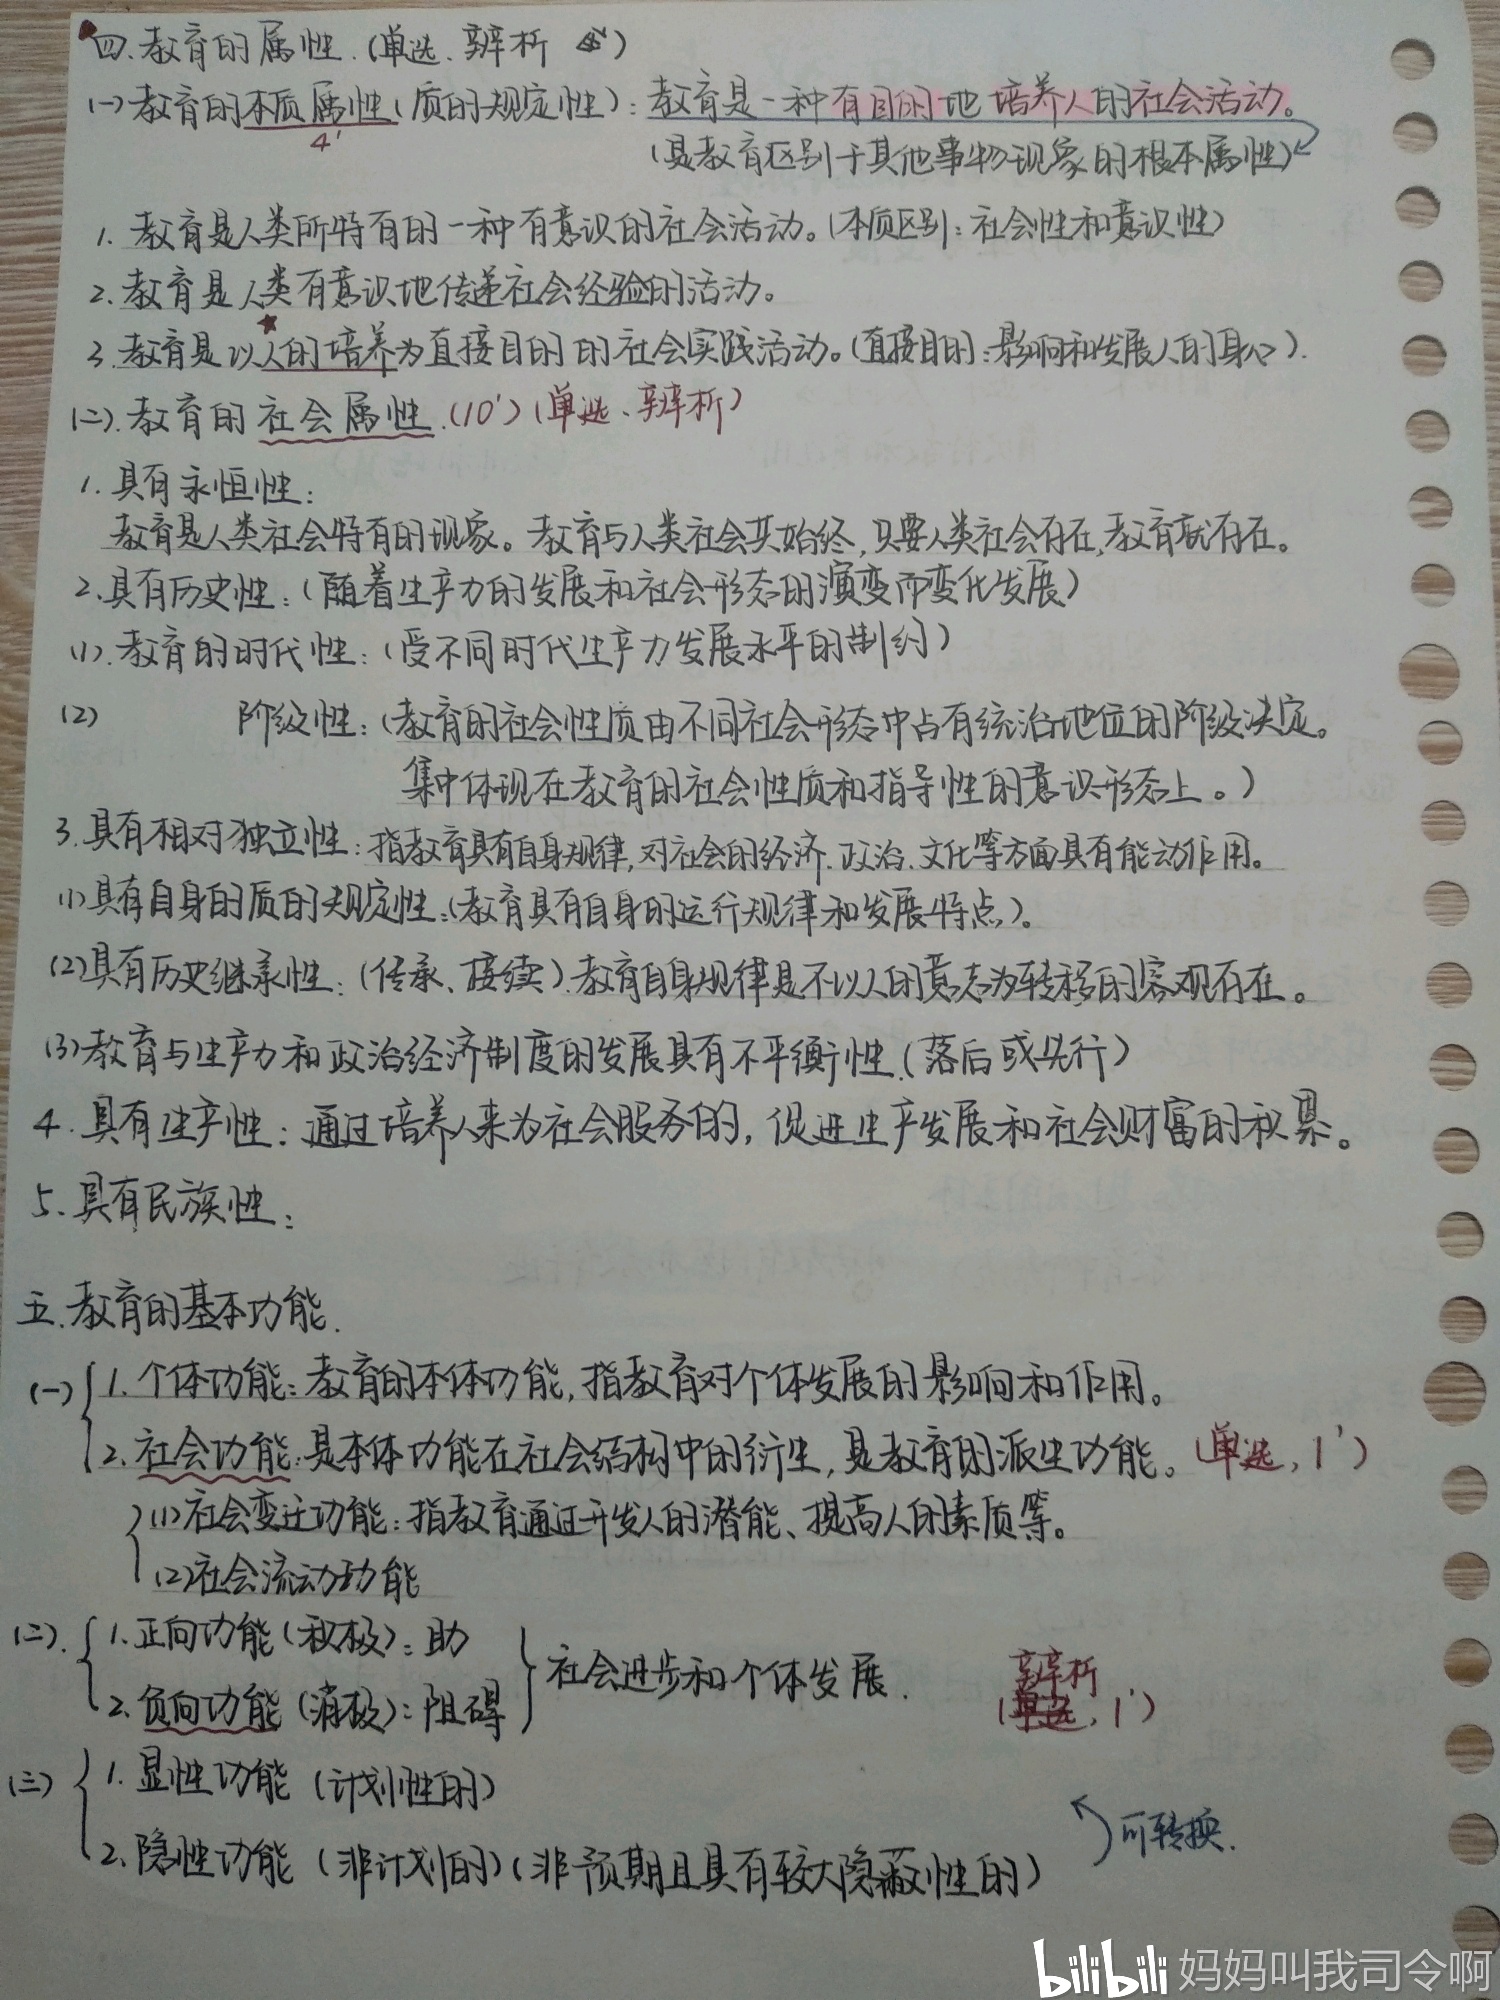 四.教育的属性.(单选.辨析)
(一)教育的本质属性(质的规定性):教育是一种有目的地培养人的社会活动。
4'
(是教育区别于其他事物现象的根本属性)
1.教育是人类所特有的一种有意识的社会活动。(本质区别:社会性和意识性)
2.教育是人类有意识地传递社会经验的活动。
3.教育是以人的培养为直接目的的社会实践活动。(直接目的:影响和发展人的身心).
(二).教育的社会属性.(10')(单选、辨析)
1.具有永恒性:
教育是人类社会特有的现象。教育与人类社会共始终,只要人类社会存在,教育就存在。
2.具有历史性:(随着生产力的发展和社会形态的演变而变化发展)
(1).教育的时代性:(受不同时代生产力发展水平的制约)
(2) 阶级性:(教育的社会性质由不同社会形态中占有统治地位的阶级决定。
集中体现在教育的社会性质和指导性的意识形态上。)
3.具有相对独立性:指教育具有自身规律,对社会的经济.政治.文化等方面具有能动作用。
(1)具有自身的质的规定性:(教育具有自身的运行规律和发展特点)。
(2)具有历史继承性:(传承、接续).教育自身规律是不以人的意志为转移的客观存在。
(3)教育与生产力和政治经济制度的发展具有不平衡性.(落后或先行)
4.具有生产性:通过培养人来为社会服务的,促进生产发展和社会财富的积累。
5.具有民族性:
五.教育的基本功能.
(一) 1.个体功能:教育的本体功能,指教育对个体发展的影响和作用。
2.社会功能:是本体功能在社会结构中的衍生,是教育的派生功能。(单选,1')
(1)社会变迁功能:指教育通过开发人的潜能、提高人的素质等。
(2)社会流动功能
(二). 1.正向功能(积极):助
2.负向功能(消极):阻碍
社会进步和个体发展.
辨析
(单选,1')
(三) 1.显性功能(计划性的)
2.隐性功能(非计划的)(非预期且具有较大隐蔽性的)
可转换.
bilibili 妈妈叫我司令啊